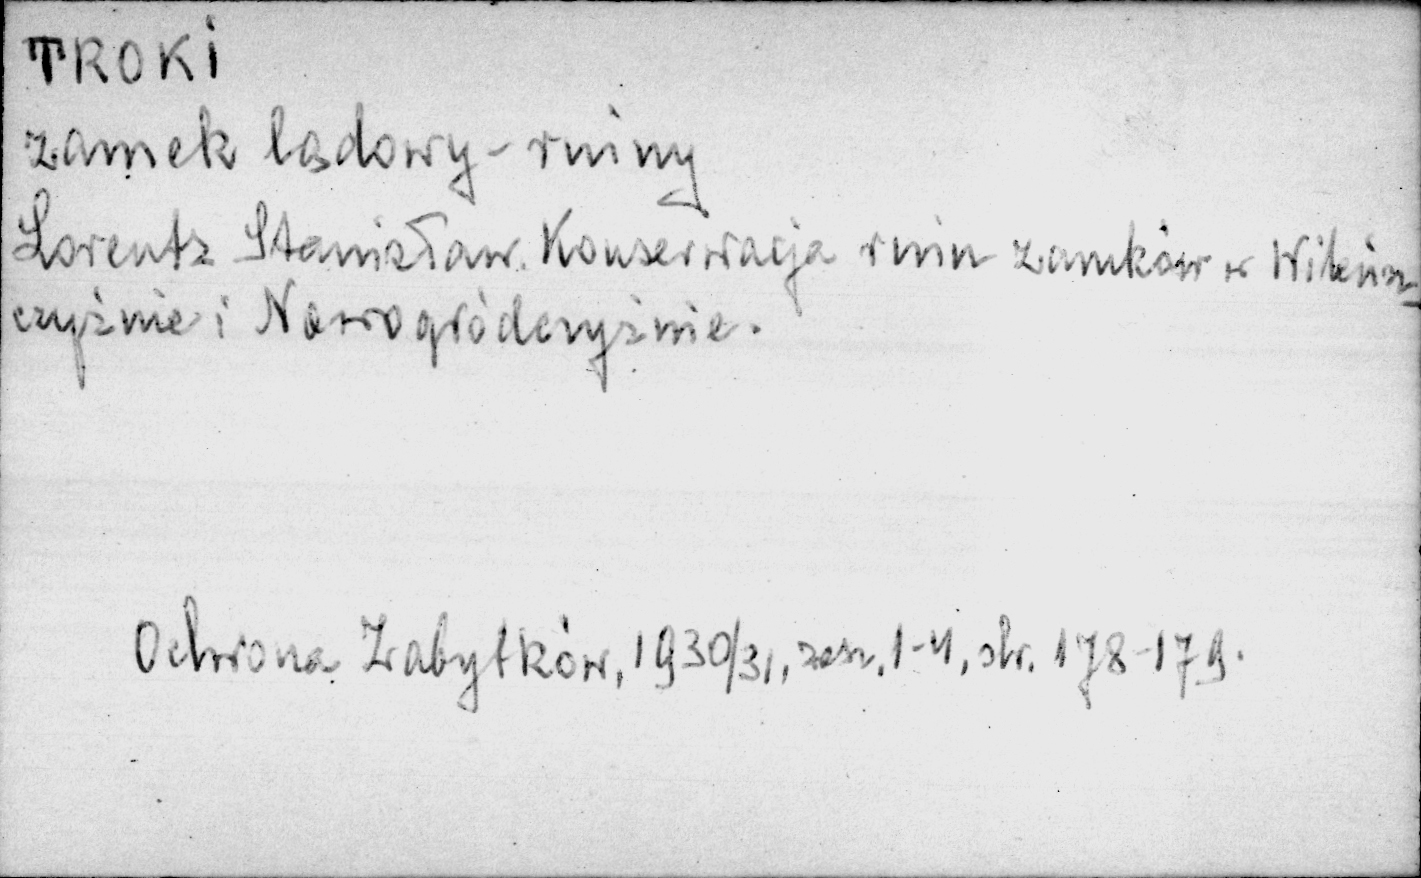 TROKI
zamek lądowy - ruiny
Lorentz Stanisław. Konserwacja ruin zamków w Wileńsz-
czyźnie i Nowogródczyźnie.
Ochrona Zabytków, 1930/31, zesz. 1-4, str. 178-179.